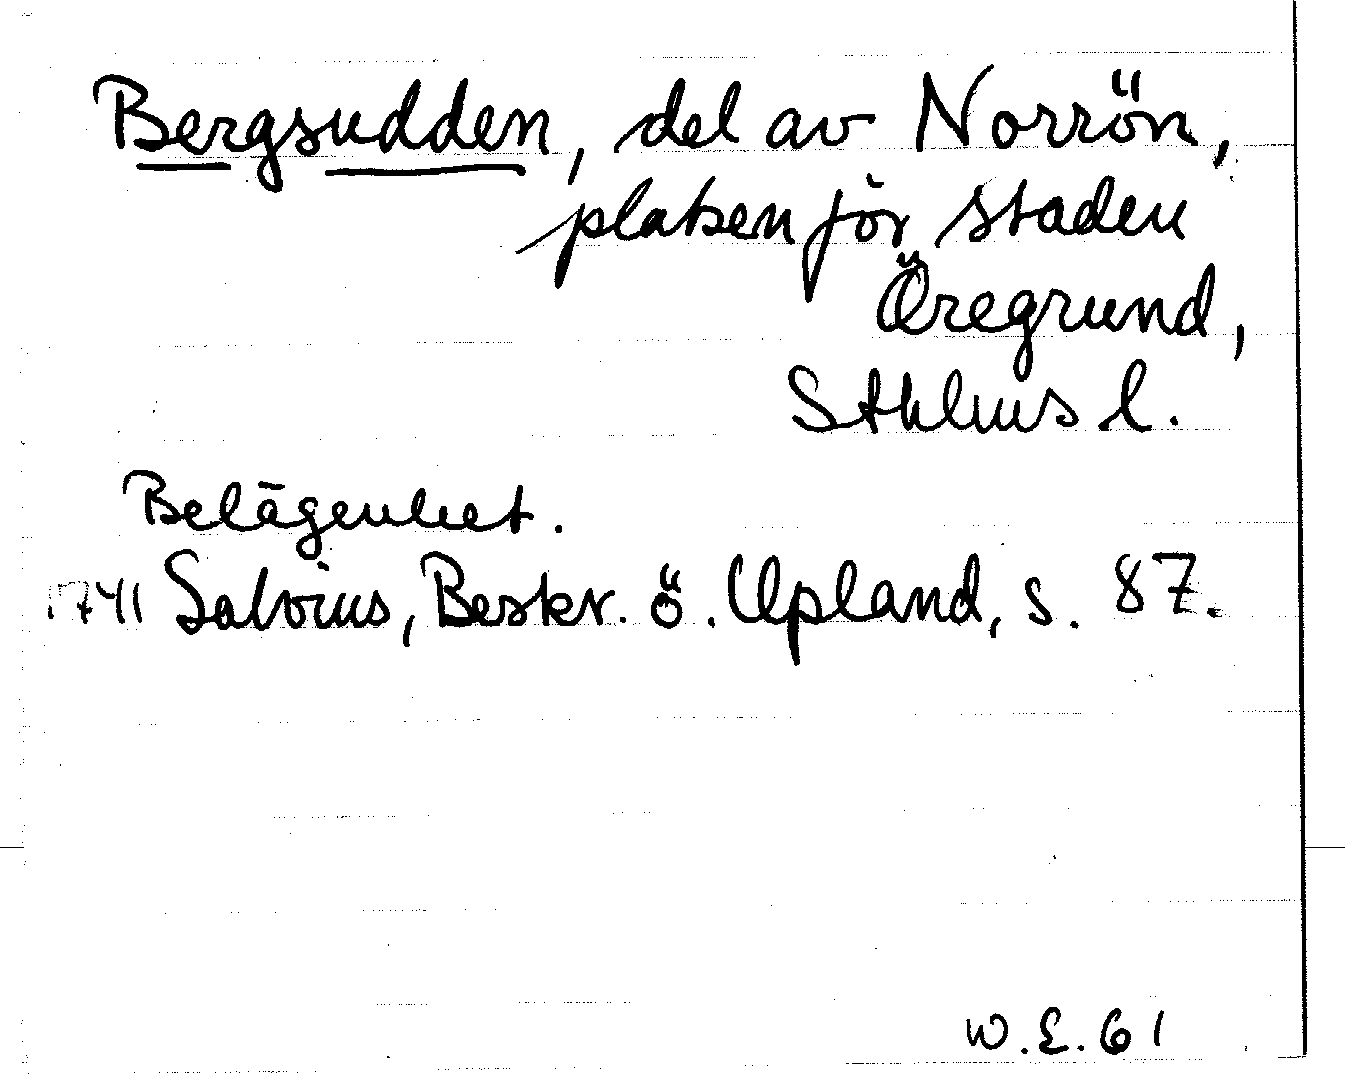 Bergsudden, del av Norrön,
platsen för staden
Öregrund,
Sthlms l.
Belägenhet.
1741 Salvius, Beskr. ö. Upland, s. 87.
W.E. 61